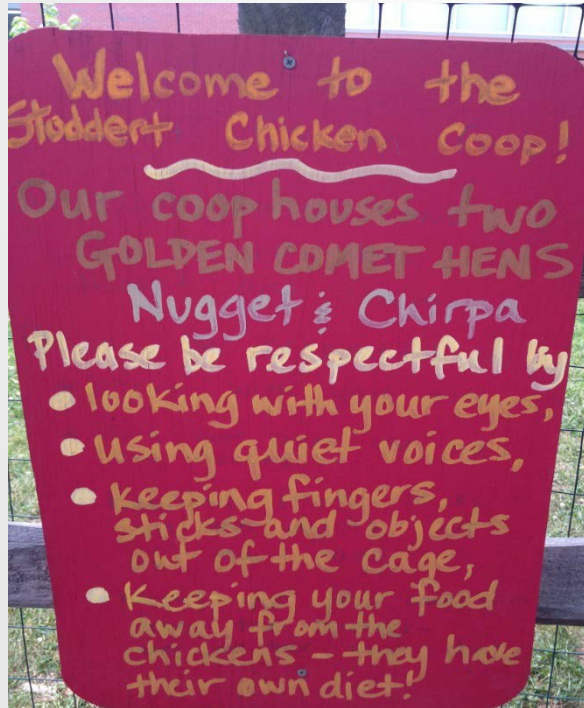 Welcome to the
Stoddert Chicken Coop!
Our coop houses two
GOLDEN COMET HENS
Nugget & Chirpa
Please be respectful by
• looking with your eyes,
• using quiet voices,
• keeping fingers,
sticks and objects
out of the cage,
• Keeping your food
away from the
chickens - they have
their own diet!